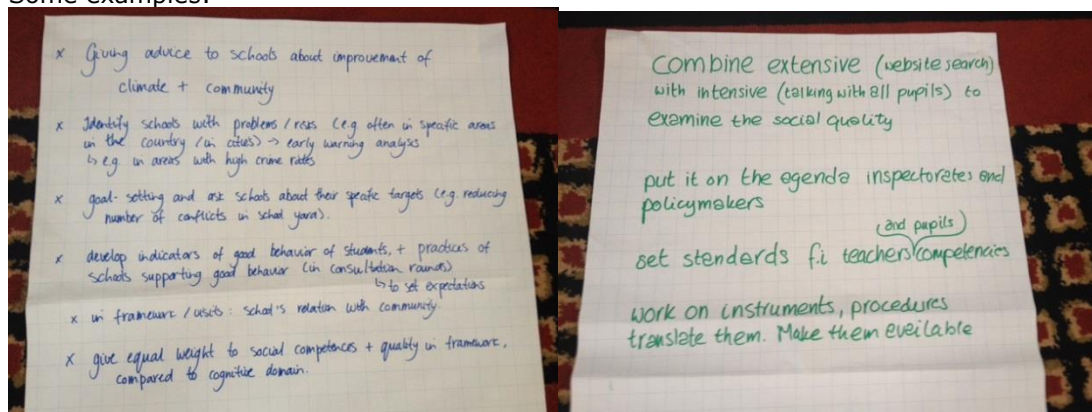 Some examples:
x Giving advice to schools about improvement of
climate + community
x Identify schools with problems / risks (e.g. often in specific areas
in the country / in cities) → early warning analysis
↳ e.g. in areas with high crime rates
x goal-setting and ask schools about their specific targets (e.g. reducing
number of conflicts in school yard).
x develop indicators of good behavior of students, + practices of
schools supporting good behavior (in consultation rounds)
↳ to set expectations
x in framework / visits: school's relation with community.
x give equal weight to social competences + quality in framework,
compared to cognitive domain.
Combine extensive (website search)
with intensive (talking with all pupils) to
examine the social quality
put it on the agenda inspectorates and
policymakers
(and pupils)
set standards f.i teachers competencies
work on instruments, procedures
translate them. Make them available